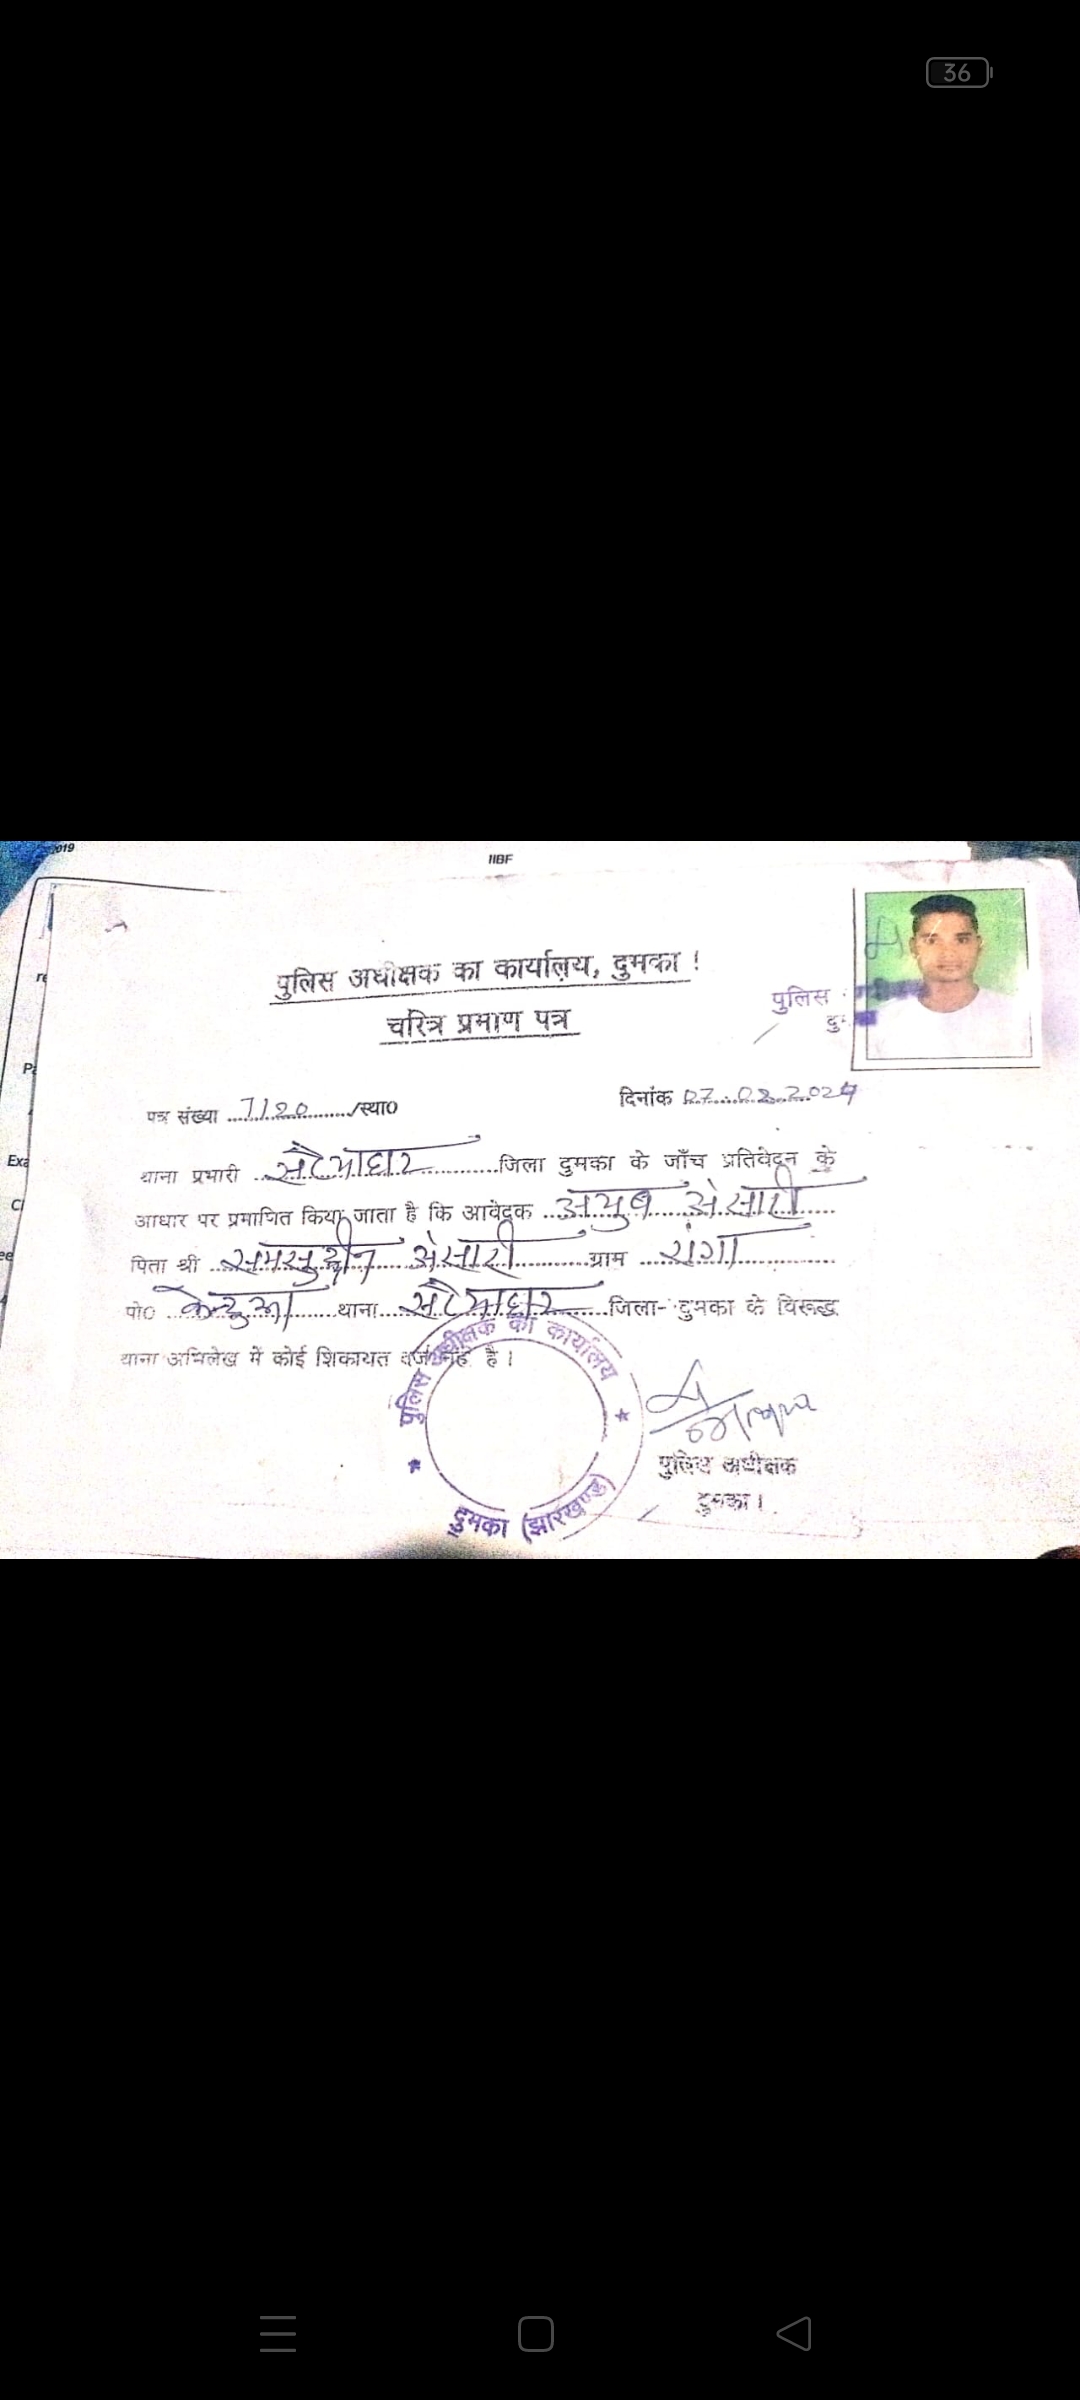 36
2019
IIBF
पुलिस अधीक्षक का कार्यालय, दुमका !
चरित्र प्रमाण पत्र
पुलिस
पत्र संख्या 7120 /स्था0
दिनांक 07.02.2024
थाना प्रभारी जिला दुमका के जाँच प्रतिवेदन के
आधार पर प्रमाणित किया जाता है कि आवेदक अयुब अंसारी
पिता श्री समसुद्दीन अंसारी ग्राम रांगा
पो0 थाना जिला- दुमका के विरूद्ध
थाना अभिलेख में कोई शिकायत दर्ज है ।
पुलिस अधीक्षक का कार्यालय
दुमका (झारखण्ड)
पुलिस अधीक्षक
दुमका ।
Exa